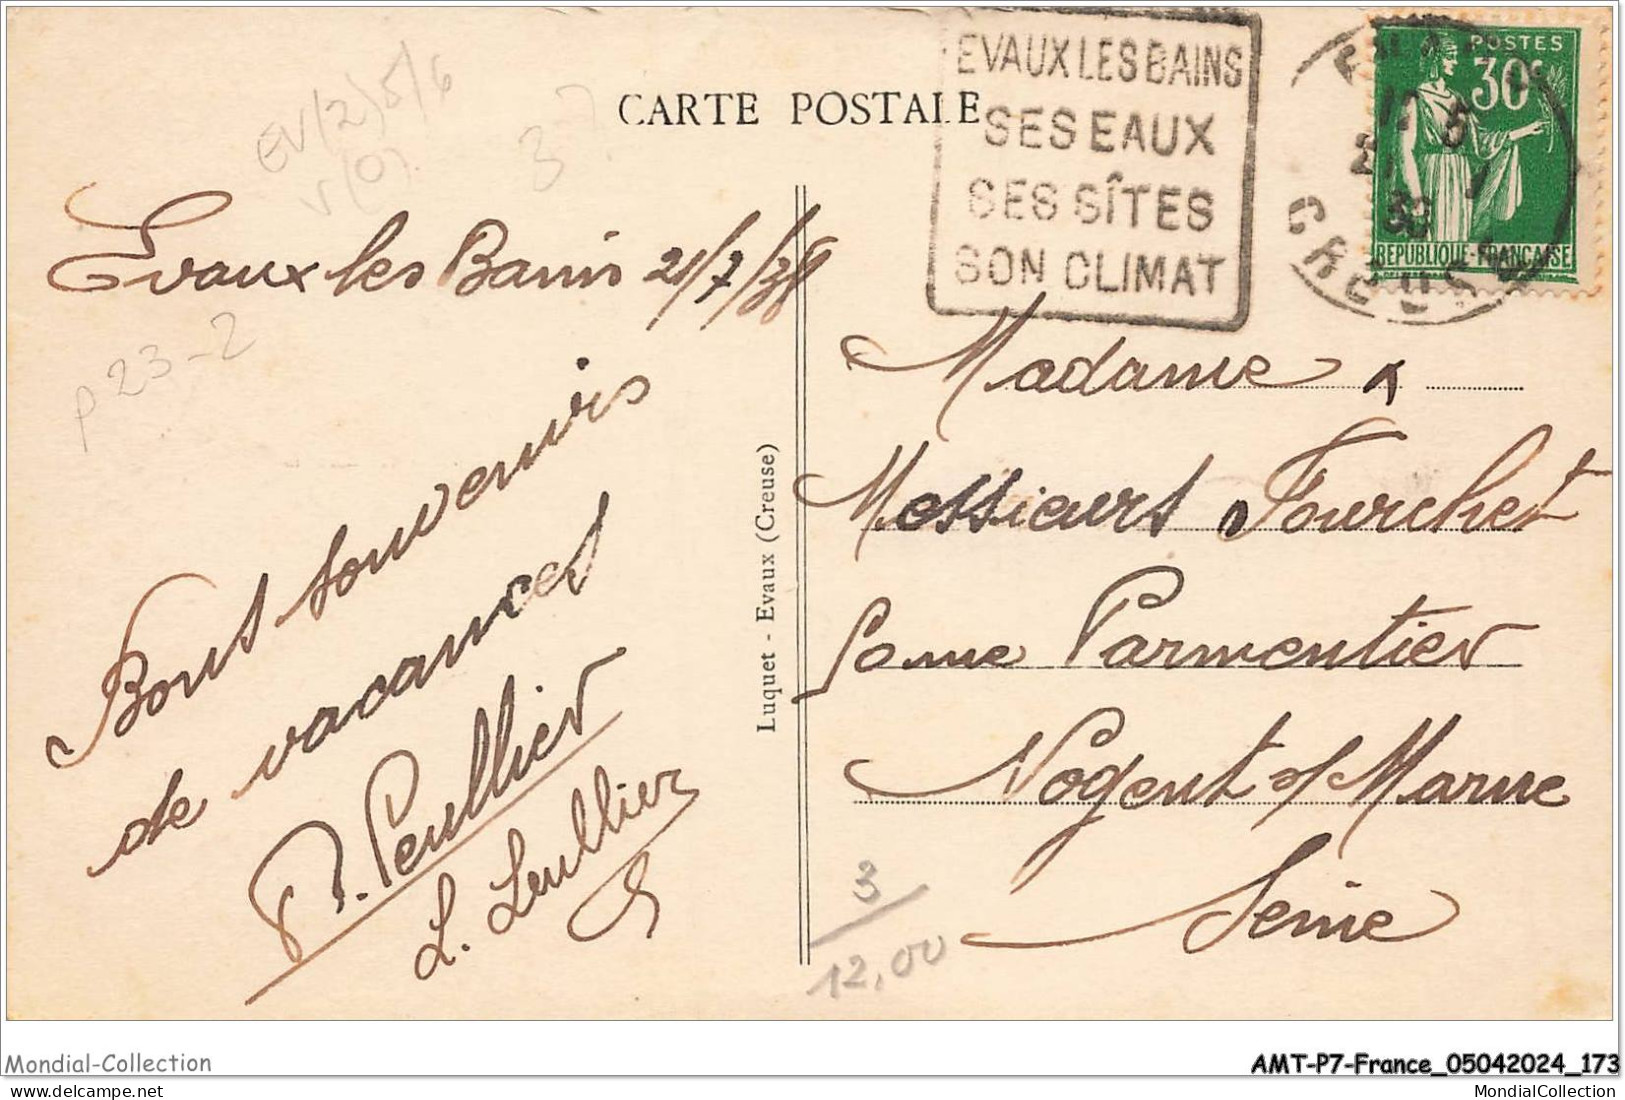 CARTE POSTALE
EVAUX LES BAINS
SES EAUX
SES SÎTES
SON CLIMAT
POSTES
30c
REPUBLIQUE-FRANÇAISE
CREUSE
EV(2)5/6
3-7
p23-2
Evaux les Bains 21/7/38
Bons souvenirs
de vacances
Peullier
L. Leullier
Luquet - Evaux (Creuse)
Madame &
Messieurs Fourchet
Parmentier
Nogent s/ Marne
Seine
3
12,00
Mondial-Collection
AMT-P7-France_05042024_173
MondialCollection
MondialCollection